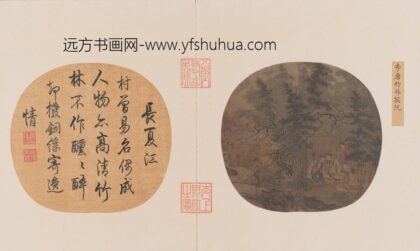 远方书画网-www.yfshuhua.com
李唐竹林撥阮
長夏江
村曾易名偶成
人物亦高清竹
林不作醺〻醉
却撥銅寄逸
情